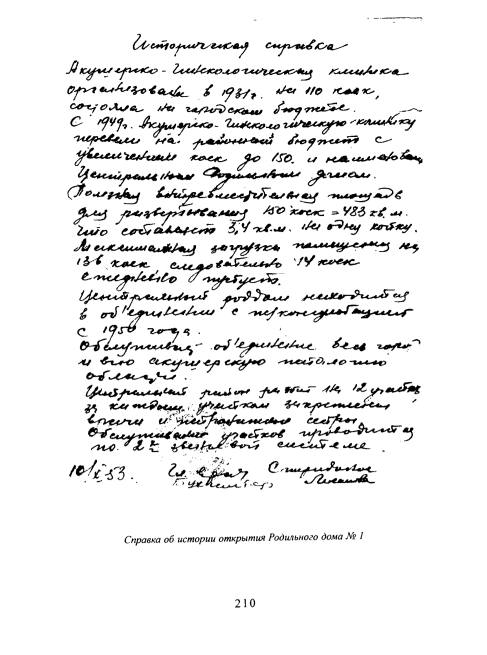 Историческая справка
Акушерско-Гинекологическая клиника
организована в 1931г. на 110 коек,
состояла на городском бюджете.
С 1949г. Акушерско-Гинекологическую клинику
перевели на районный бюджет с
увеличением коек до 150. и наименован
Центральным Родильным домом.
Полезная площадь
для развертывания 150 коек = 483 кв.м.
что составляет 3,4 кв.м. на одну койку.
Максимальная загрузка помещения на
136 коек следовательно 14 коек
ежедневно пустует.
Центральный роддом находится
в об'единении с
с 1950 года.
об'единение весь город
и всю акушерскую патологию
области.
Центральный район разбит на 12 участков
за каждым участком закреплены
врачи и патронажные сестры
Обслуживание участков проводится
по 2х звеньевой системе.
10/X 53. Гл. врач Спиридонова
Бухгалтер
Справка об истории открытия Родильного дома № 1
210